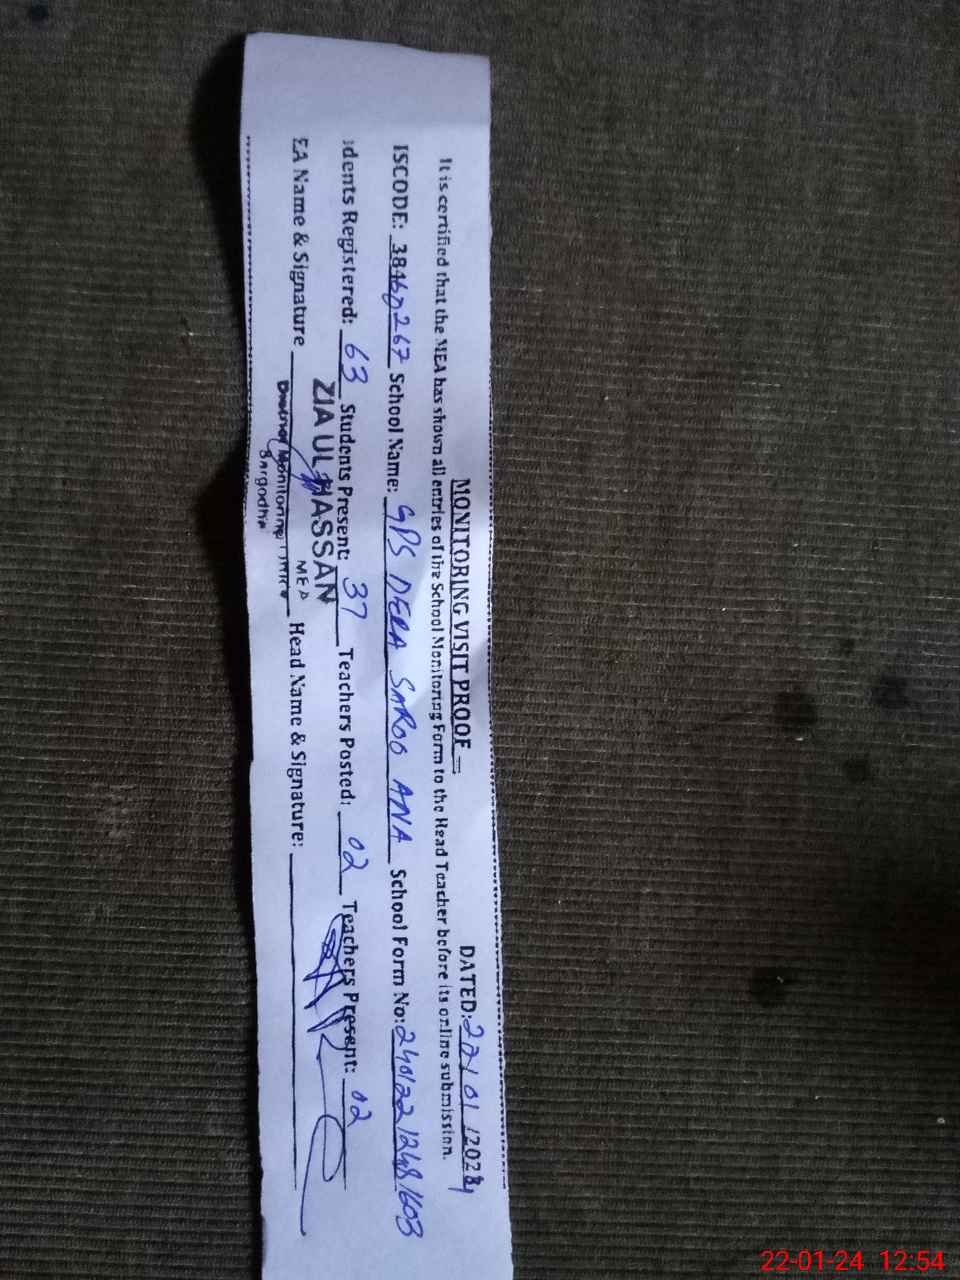 MONITORING VISIT PROOF
DATED: 22/01/2024
It is certified that the MEA has shown all entries of the School Monitoring Form to the Head Teacher before its online submission.
ISCODE: 38460267 School Name: GPS DERA SAROO ANA School Form No:
idents Registered: 63 Students Present: 37 Teachers Posted: 02 Teachers Present: 02
ZIA UL HASSAN
EA Name & Signature MEA Head Name & Signature:
District Monitoring
Sargodha
22-01-24 12:54